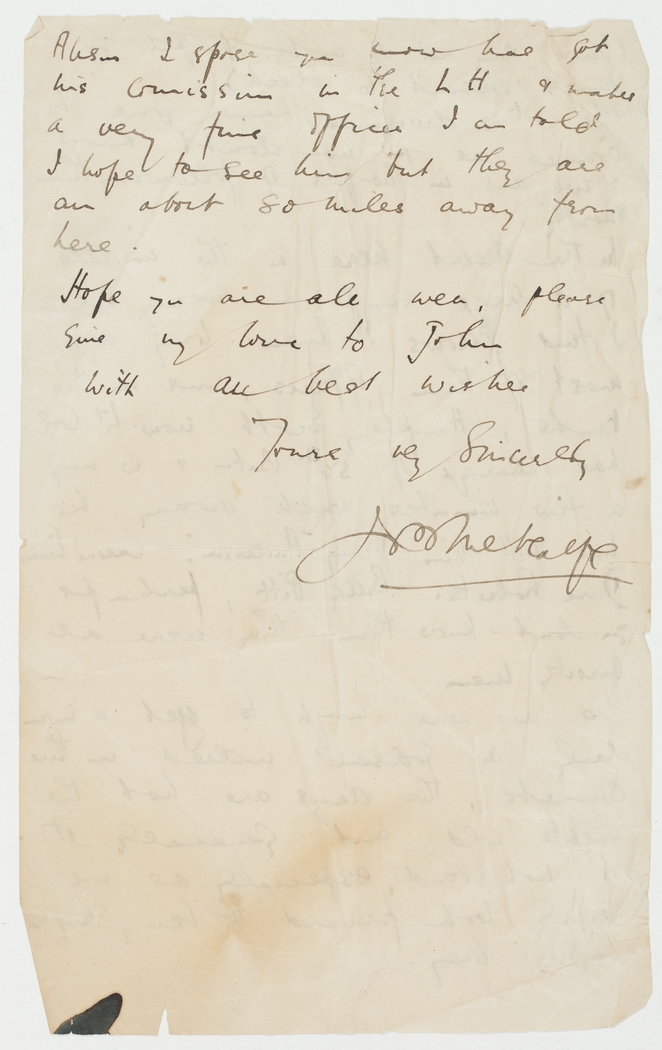 I spose you know has got
his comission in the L H & makes
a very fine officer I am told
I hope to see him but they are
an about 80 miles away from
here.
Hope you are all well, please
give my love to John
With all best wishes
Yours very Sincerely
Metcalfe